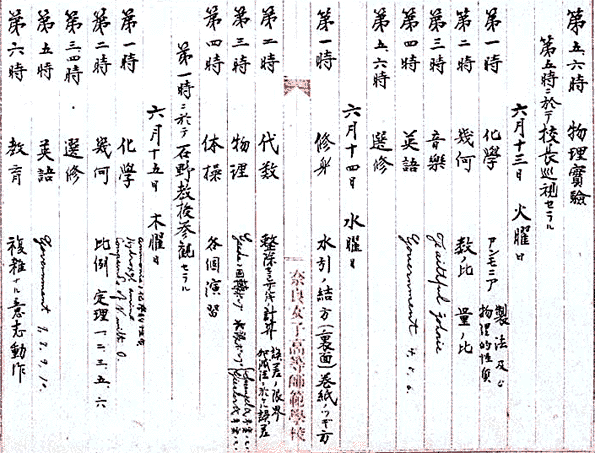 第五、六時 物理實驗
第五時ニ於テ校長巡視セラル
六月十三日 火曜日
第一時 化學 アンモニア 製法及ビ物理的性質
第二時 幾何 数ノ比 量ノ比
第三時 音樂 Faithful
第四時 英語 Government 4, 5, 6.
第五、六時 選修
六月十四日 水曜日
第一時 修身 水引ノ結方(裏面)巻紙ノツギ方
奈良女子高等師範學校
第二時 代数 整除 計算 誤差ノ限界 加減法ニ於ケル誤差
第三時 物理
第四時 体操 各個演習
第一時ニ於テ石野教授参観セラル
六月十五日 木曜日
第一時 化學 Ammonia Hydroxyl amine Compounds of N with O.
第二時 幾何 比例 定理一、二、三、五、六
第三、四時 選修
第五時 英語 Government 7, 8, 9, 10
第六時 教育 複雑ナル意志動作